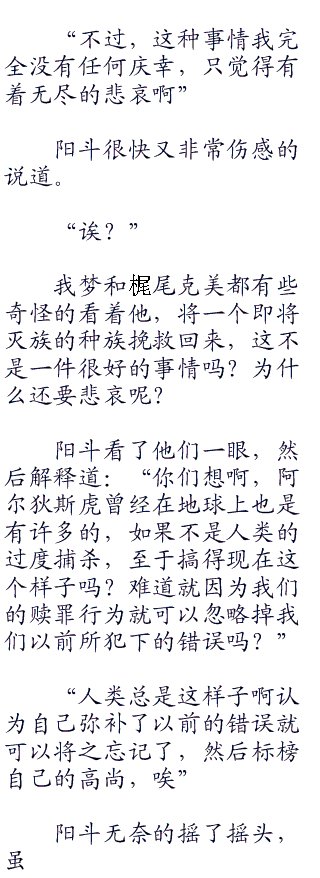 “不过，这种事情我完
全没有任何庆幸，只觉得有
着无尽的悲哀啊”
阳斗很快又非常伤感的
说道。
“诶？”
我梦和梶尾克美都有些
奇怪的看着他，将一个即将
灭族的种族挽救回来，这不
是一件很好的事情吗？为什
么还要悲哀呢？
阳斗看了他们一眼，然
后解释道：“你们想啊，阿
尔狄斯虎曾经在地球上也是
有许多的，如果不是人类的
过度捕杀，至于搞得现在这
个样子吗？难道就因为我们
的赎罪行为就可以忽略掉我
们以前所犯下的错误吗？”
“人类总是这样子啊认
为自己弥补了以前的错误就
可以将之忘记了，然后标榜
自己的高尚，唉”
阳斗无奈的摇了摇头，
虽